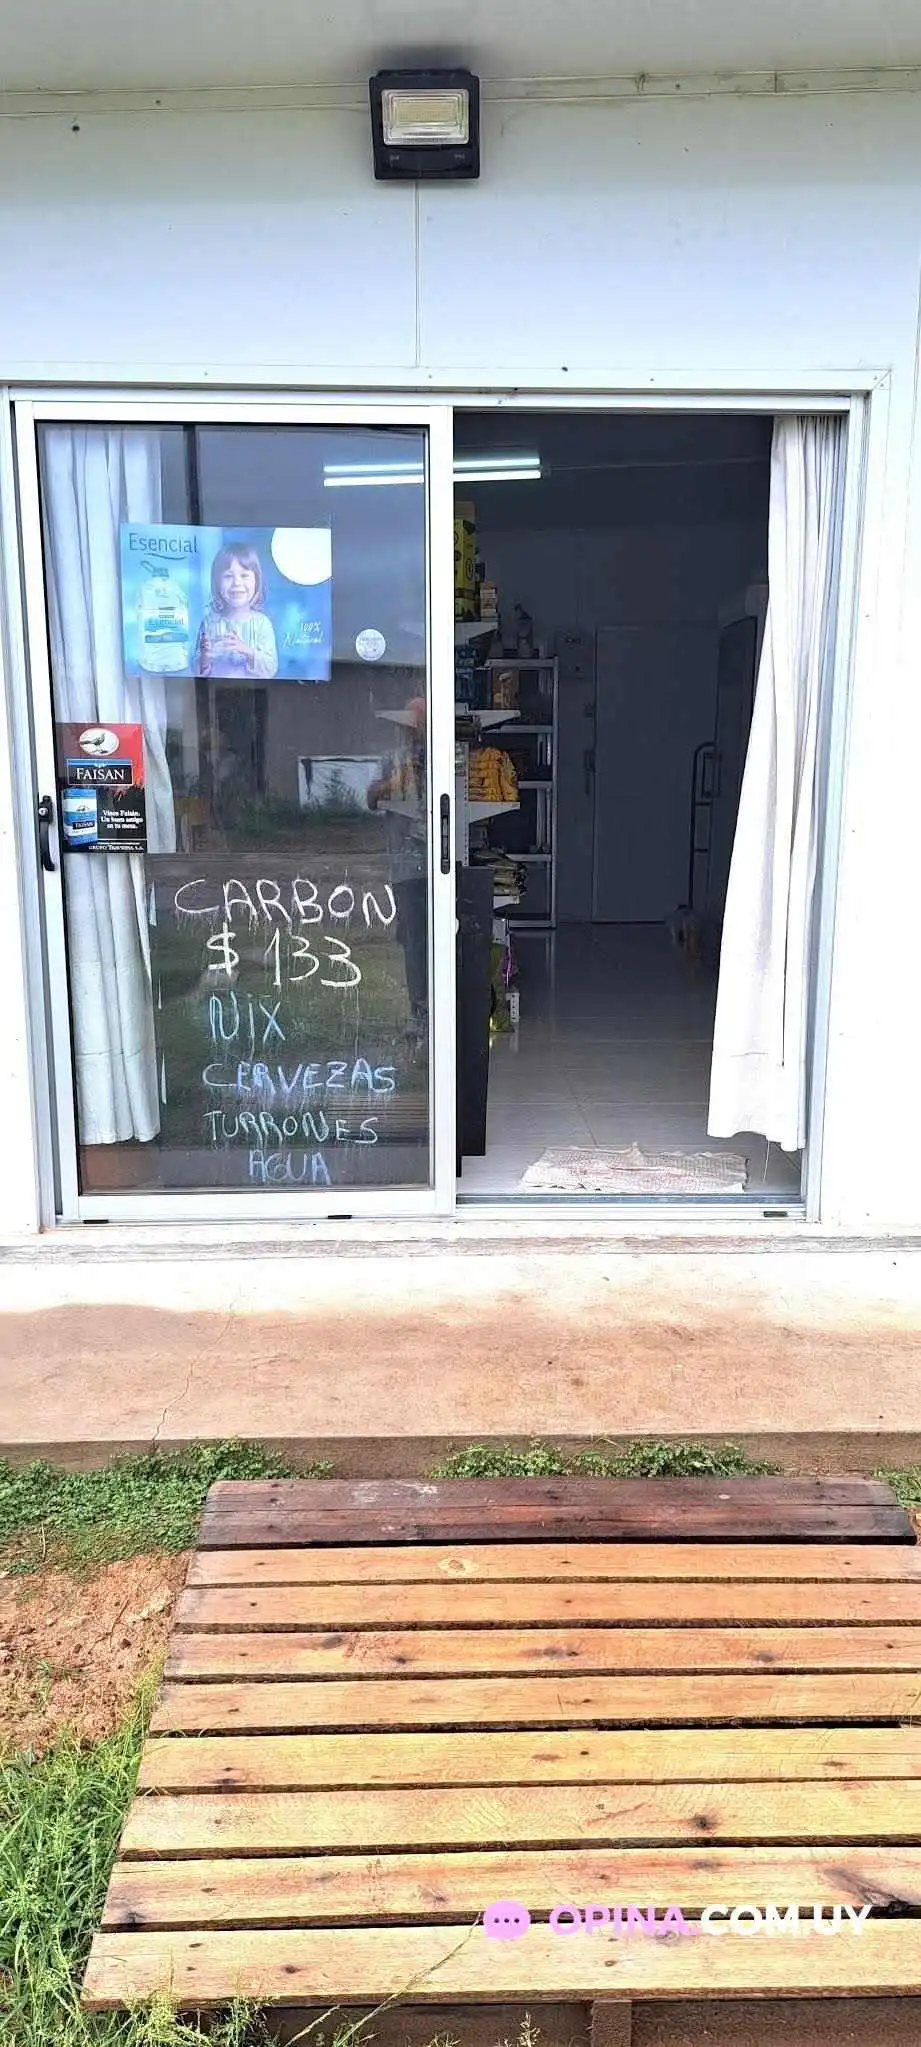 Esencial
Esencial
100%
Natural
FAISAN
FAISAN
Vinos Faisán.
Un buen amigo
en tu mesa.
GRUPO TRAVERSA S.A.
CARBÓN
$ 133
NIX
CERVEZAS
TURRONES
AGUA
OPINA.COM.UY